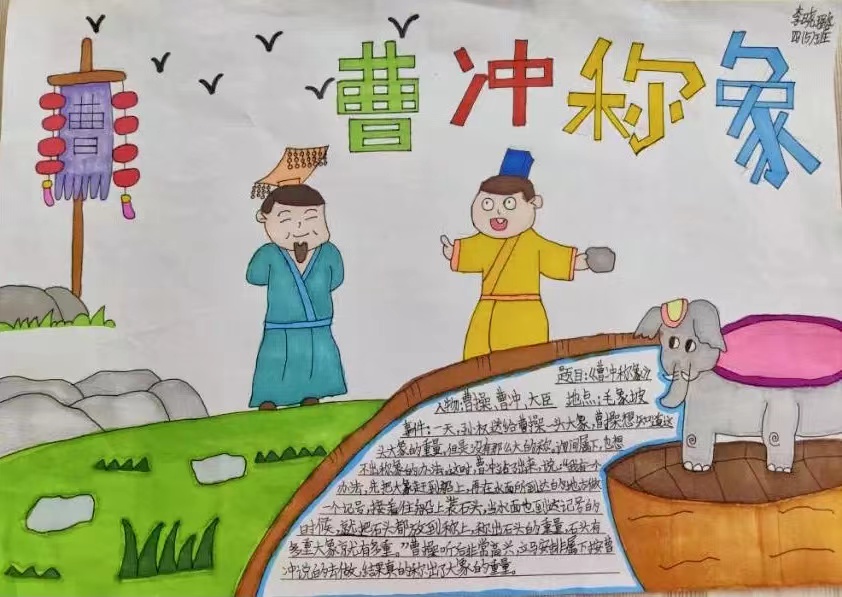 曹冲称象
四(5)班
曹
题目:《曹冲称象》
人物:曹操、曹冲、大臣 地点:毛象坡
事件:一天,孙权送给曹操一头大象,曹操想知道这
头大象的重量,但是没有那么大的称,询问属下,也想
不出称象的办法,这时,曹冲站了出来,说:“我有一个
办法,先把大象赶到船上,再在水面所到达的地方做
一个记号,接着往船上装石头,当水面也到达记号的
时候,就把石头都放到称上,称出石头的重量,石头有
多重大象就有多重。”曹操听后非常高兴,立马安排属下按曹
冲说的去做,结果真的称出了大象的重量。